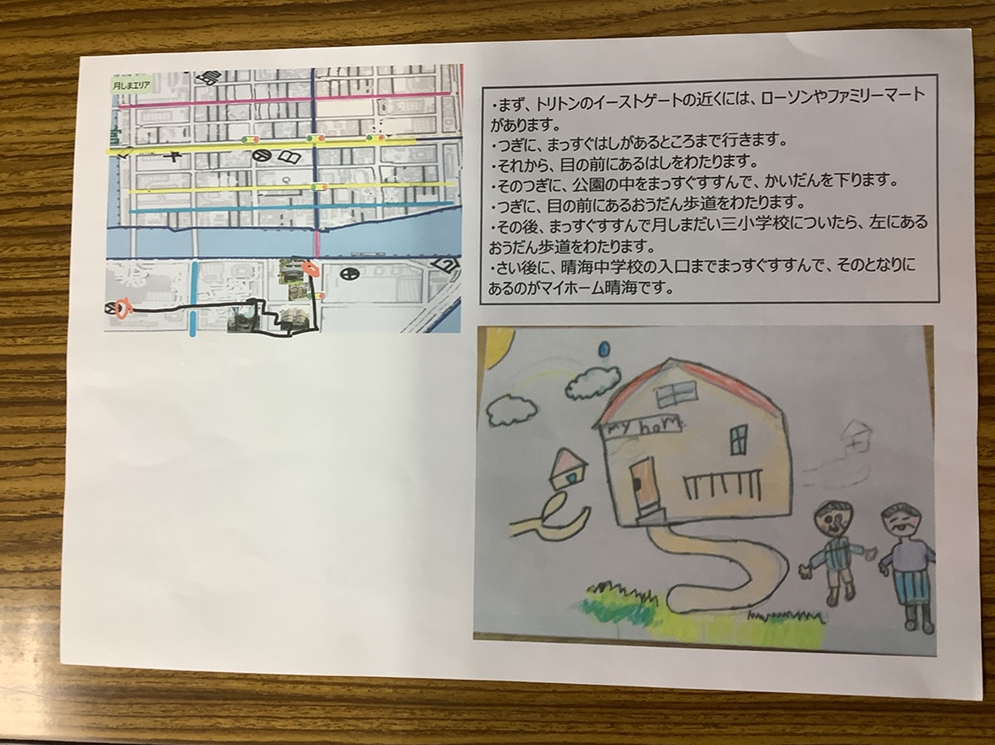 月しまエリア
・まず、トリトンのイーストゲートの近くには、ローソンやファミリーマート
があります。
・つぎに、まっすぐはしがあるところまで行きます。
・それから、目の前にあるはしをわたります。
・そのつぎに、公園の中をまっすぐすすんで、かいだんを下ります。
・つぎに、目の前にあるおうだん歩道をわたります。
・その後、まっすぐすすんで月しまだい三小学校についたら、左にある
おうだん歩道をわたります。
・さい後に、晴海中学校の入口までまっすぐすすんで、そのとなりに
あるのがマイホーム晴海です。
my hom